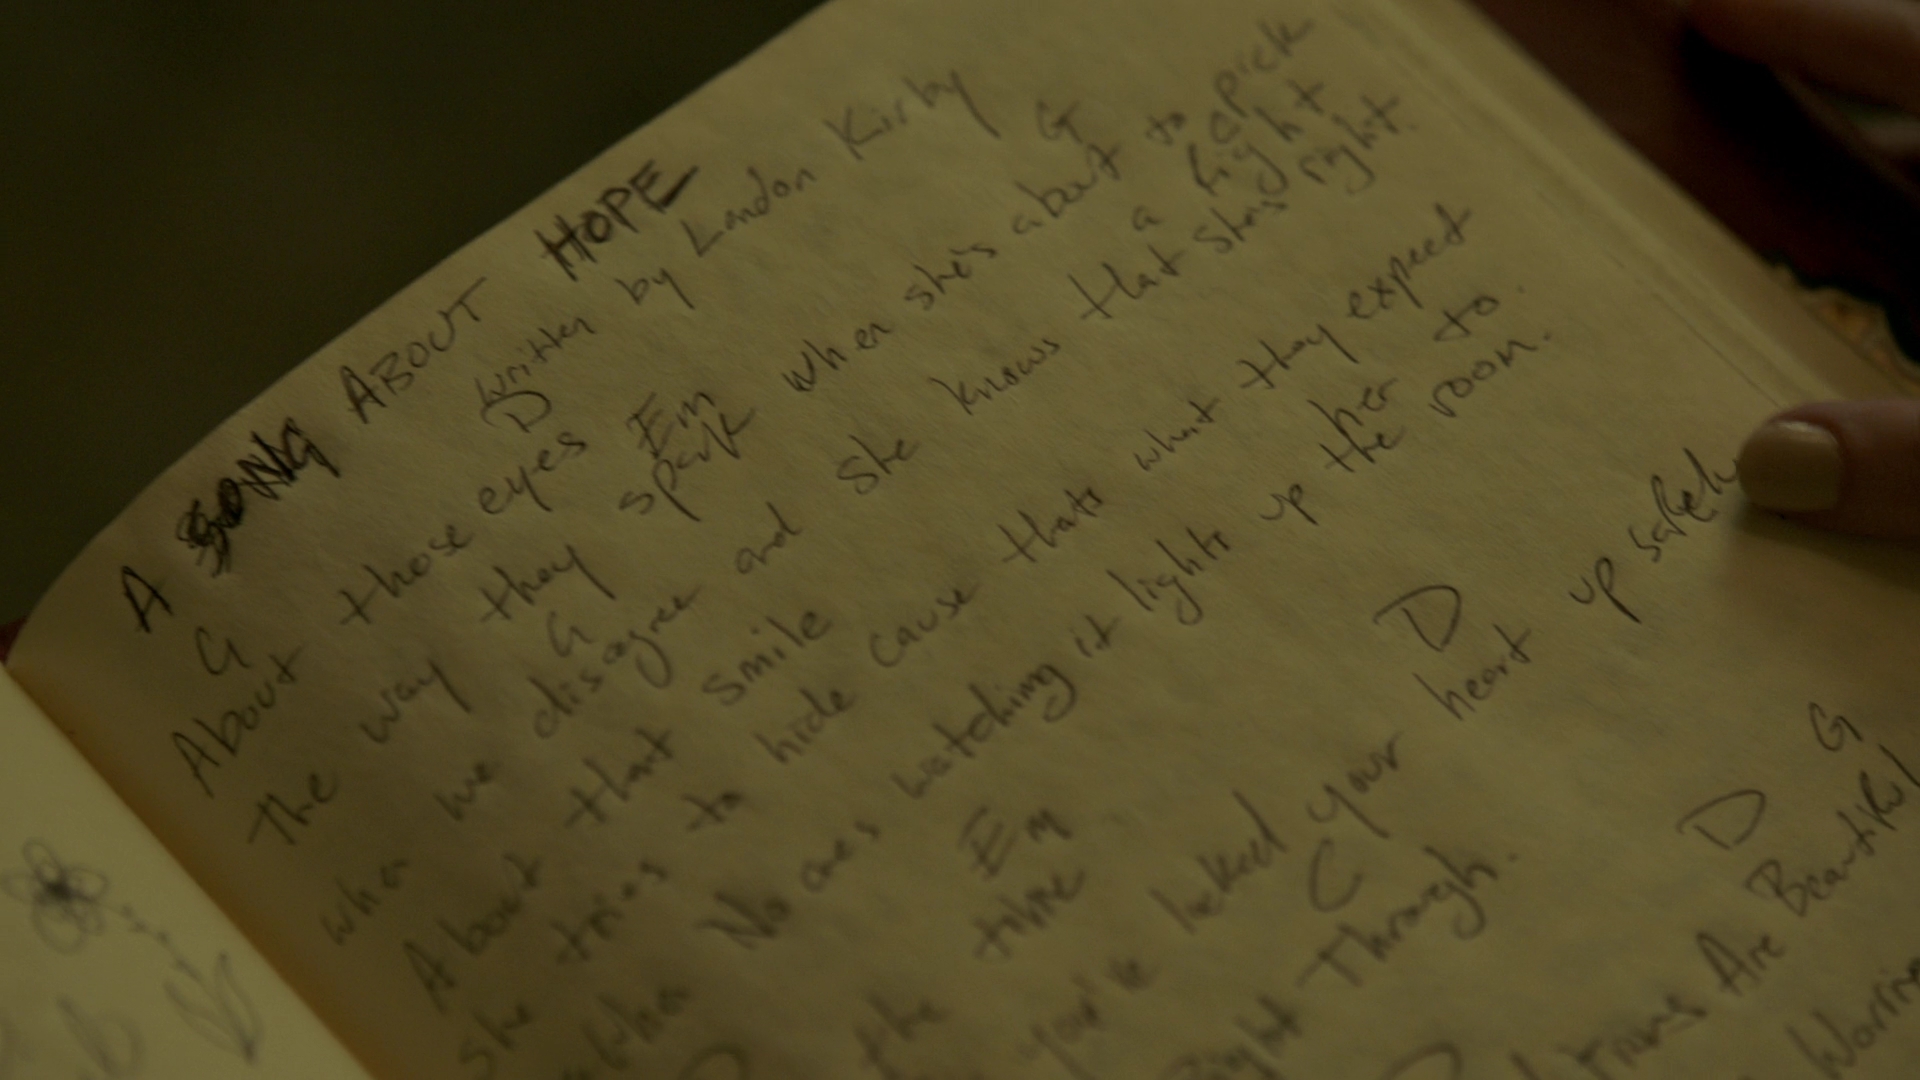 A SONG ABOUT HOPE
written by London Kirby
G D Em G
About those eyes
The way they spark when she's about to pick a fight
G
when we disagree and she knows that shes right.
About that smile
she tries to hide cause thats what they expect her to.
When No ones watching it lights up the room.
Em D
the time
you've locked your heart up safely
C
Right Through.
D G
Are Beautiful